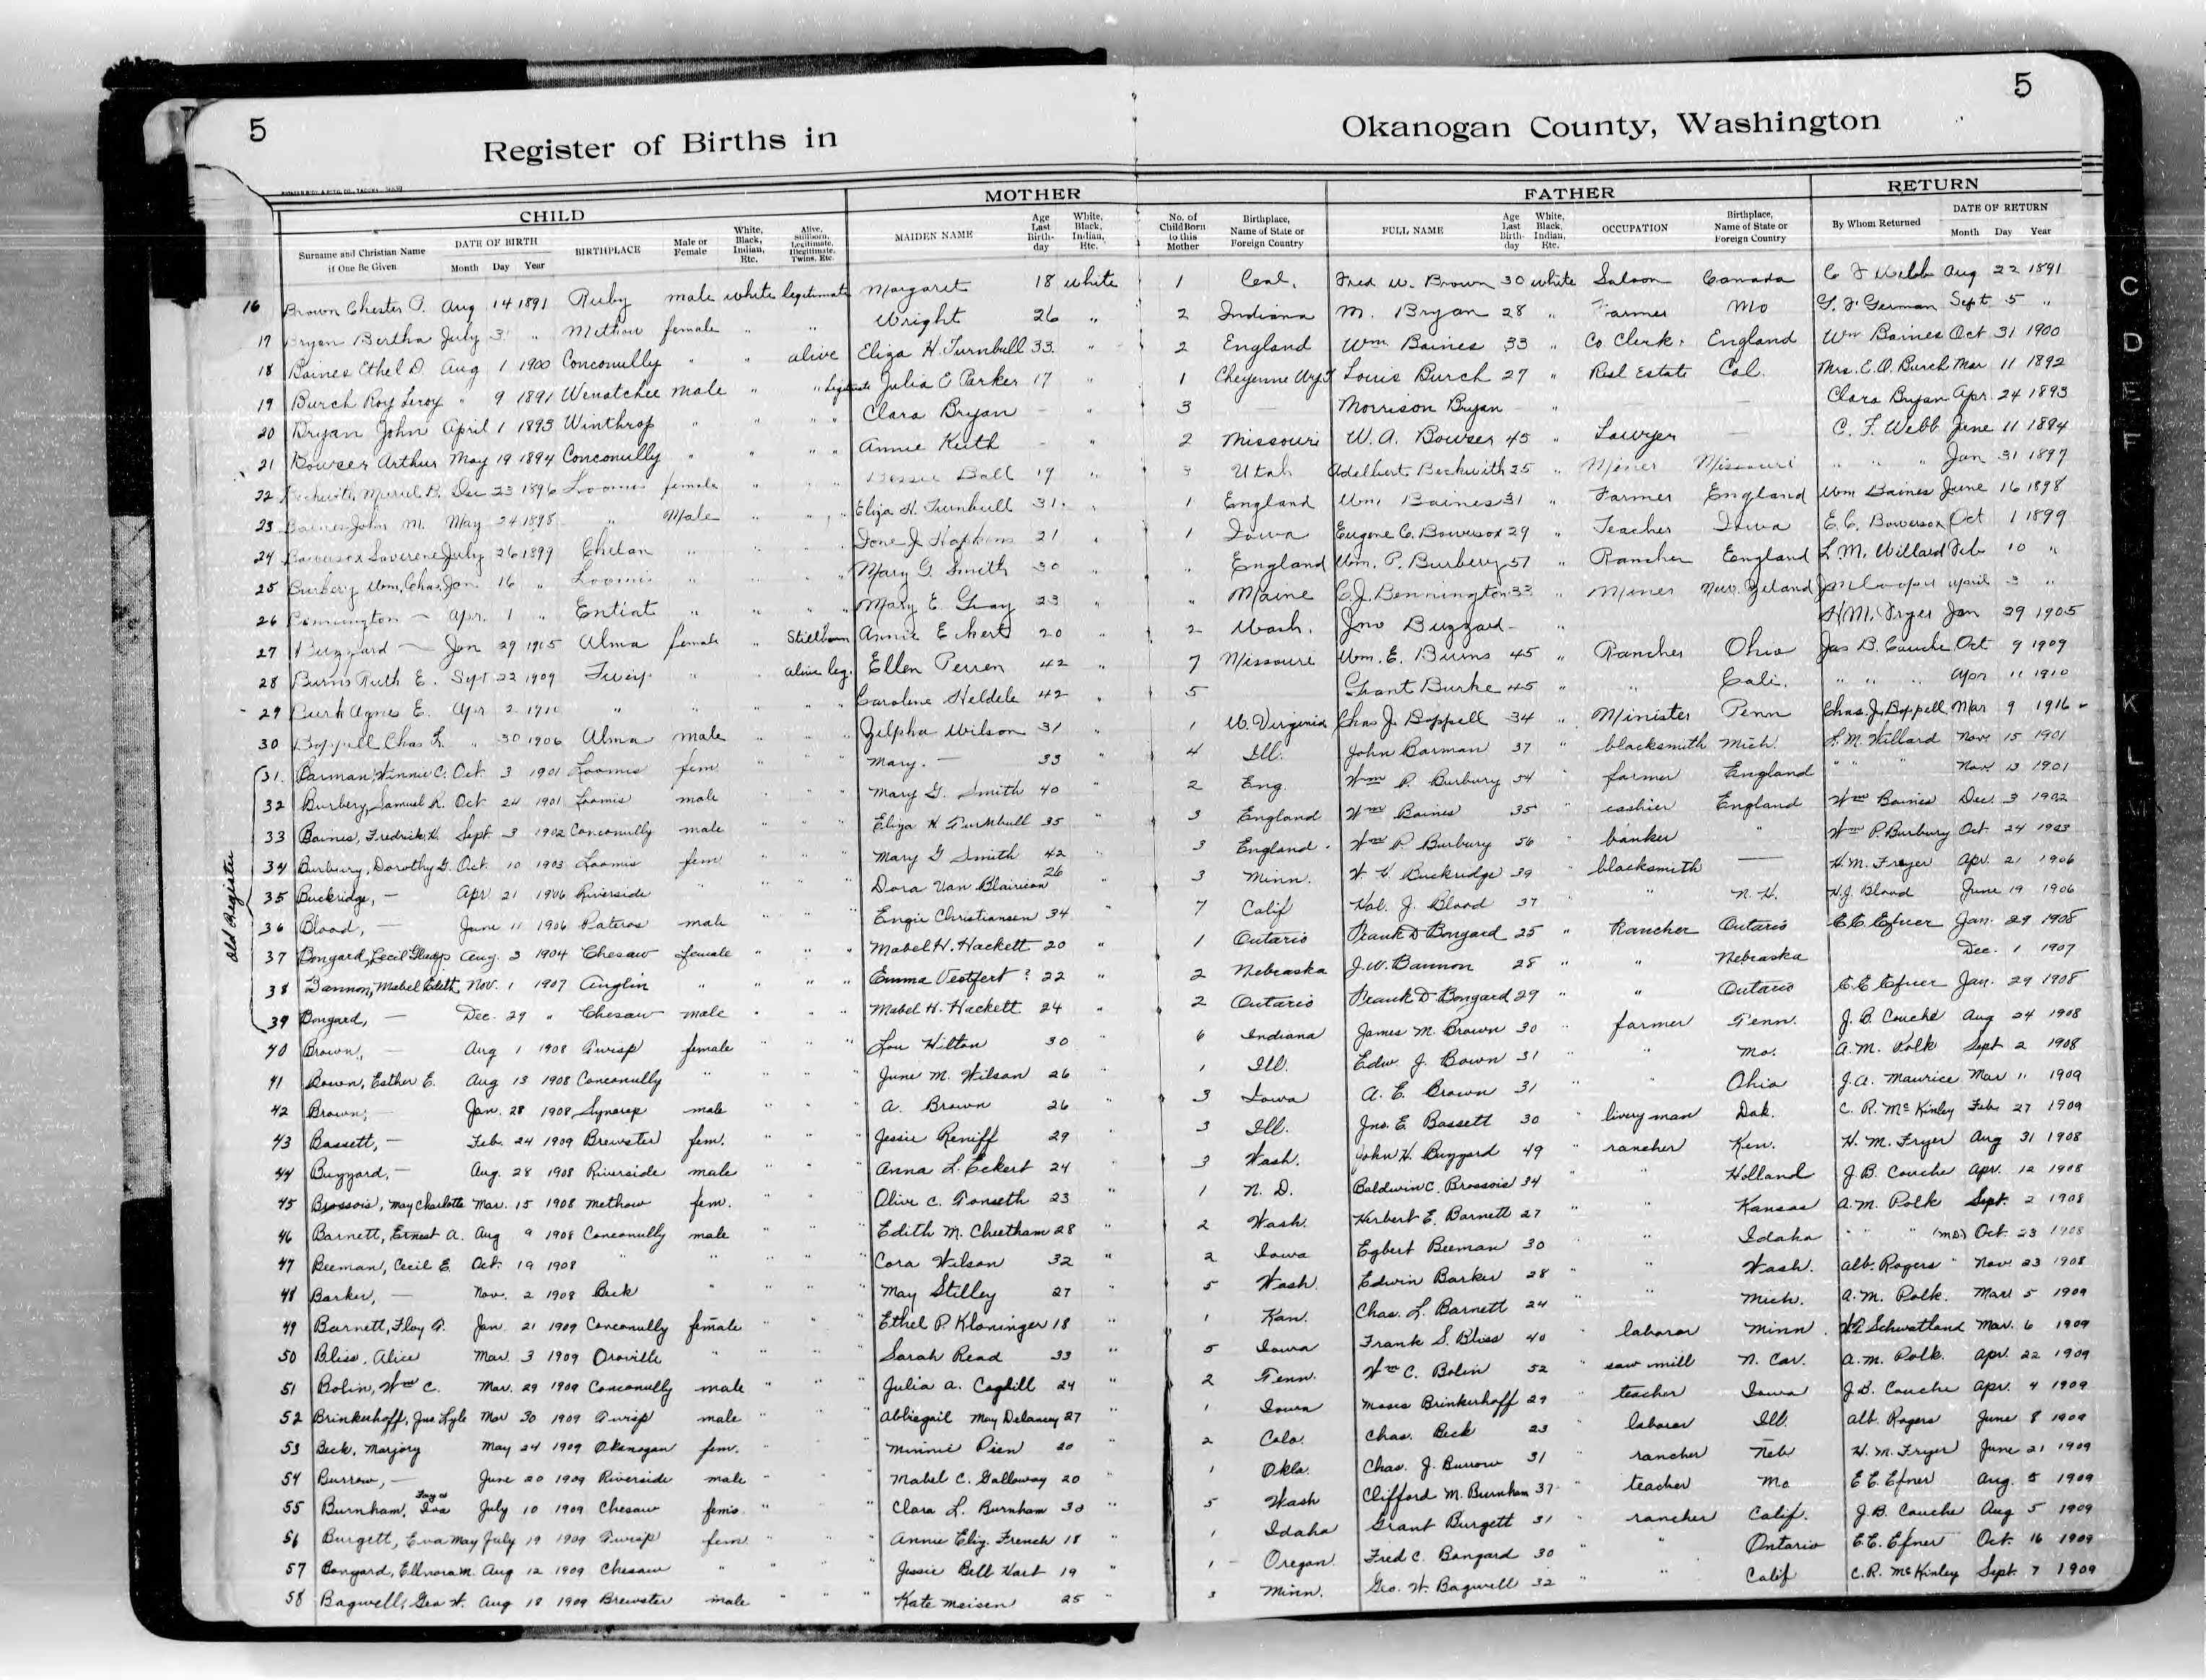 5
5
Register of Births in
Okanogan County, Washington
CHILD
MOTHER
FATHER
RETURN
Surname and Christian Name if One Be Given
DATE OF BIRTH Month Day Year
BIRTHPLACE
Male or Female
White, Black, Indian, Etc.
Alive, Stillborn, Legitimate, Illegitimate, Twins, Etc.
MAIDEN NAME
Age Last Birthday
White, Black, Indian, Etc.
No. of Child Born to this Mother
Birthplace, Name of State or Foreign Country
FULL NAME
Age Last Birthday
White, Black, Indian, Etc.
OCCUPATION
Birthplace, Name of State or Foreign Country
By Whom Returned
DATE OF RETURN Month Day Year
16 Brown Chester Aug 14 1891 Ruby male white legitimate Margaret 18 white 1 Fred W. Brown 30 white Saloon Canada Webb Aug 22 1891
17 Bryan Bertha July 3 " Methow female " " Wright 26 " 2 Indiana M. Bryan 28 " Farmer Mo German Sept 5 "
18 Baines Ethel D. Aug 1 1900 Conconully " " alive Eliza H. Turnbull 33 " 2 England Wm Baines 33 " Co Clerk England Wm Baines Oct 31 1900
19 Burch Roy Leroy " 9 1891 Wenatchee Male " " Legitimate Julia E Parker 17 " 1 Cheyenne Louis Burch 27 " Real Estate Cal. Mrs. E. O. Burch Mar 11 1892
20 Bryan John April 1 1893 Winthrop " " " " Clara Bryan - " 3 — Morrison Bryan - " — — Clara Bryan Apr. 24 1893
21 Bowser Arthur May 19 1894 Conconully " " " " Annie Keith - " 2 Missouri W. A. Bowser 45 " Lawyer — C. F. Webb June 11 1894
22 Beckwith B. Dec 23 1896 Loomis female " " " Bessie Ball 19 " Utah Adelbert Beckwith 25 " Miner Missouri " " " Jan 31 1897
23 Baines John M. May 24 1898 " Male " " " Eliza H. Turnbull 31 " 1 England Wm. Baines 31 " Farmer England Wm Baines June 16 1898
24 Bowersox July 26 1899 Chelan " " " Hopkins 21 " 1 Iowa Eugene C. Bowersox 29 " Teacher Iowa E. C. Bowersox Oct 1 1899
25 Burbery Wm. Chas Jan 16 " Loomis " " " Mary G. Smith 30 " " England Wm. P. Burbery 51 " Rancher England L. M. Willard Feb 10 "
26 Bennington — Apr. 1 " Entiat " " " Mary E. Gray 23 " " Maine C. J. Bennington 33 " Miner New Zeland April 3 "
27 Buzzard — Jan 29 1905 Alma female " Stillborn Annie Eckert 20 " 2 Wash. Jno Buzzard - " H. M. Fryer Jan 29 1905
28 Burns Ruth E. Sept 22 1909 Twisp " " alive leg. Ellen Perren 42 " 7 Missouri Wm. E. Burns 45 " Rancher Ohio Jas B. Couche Oct 9 1909
29 Burk Agnes E. Apr 2 1910 " " " " " Caroline Heldele 42 " 5 Grant Burke 45 " " Cali. " " " Apr 11 1910
30 Boppell Chas L. " 30 1906 Alma male " " " Zilpha Wilson 31 " 1 W. Virginia Chas J. Boppell 34 " Minister Penn Chas. J. Boppell Mar 9 1916
Old Register
31. Barman, Winnie C. Oct. 3 1901 Loomis fem " " " Mary. — 33 " 4 Ill. John Barman 37 " blacksmith Mich. L. M. Willard Nov. 15 1901
32 Burbery, Samuel R. Oct 24 1901 Loomis male " " " Mary G. Smith 40 " 2 Eng. Wm P. Burbury 54 " farmer England " " " Nov. 13 1901
33 Baines, Fredrick H. Sept 3 1902 Conconully male " " " Eliza H Turnbull 35 " 3 England Wm Baines 35 " cashier England Wm Baines Dec. 3 1902
34 Burbury, Dorothy G. Oct. 10 1903 Loomis fem " " " Mary G Smith 42 " 3 England Wm P. Burbury 56 " banker " Wm P. Burbury Oct 24 1903
35 Buckridge, — Apr 21 1906 Riverside " " " " Dora Van Blairicon 26 " 3 Minn. W. H. Buckridge 39 blacksmith — H. M. Fryer Apr. 21 1906
36 Blood, — June 11 1906 Pateros male " " " Engie Christiansen 34 7 Calif Hal. J. Blood 37 " N. H. H. J. Blood June 19 1906
37 Bongard, Cecil Gladys Aug. 3 1904 Chesaw female " " " Mabel H. Hackett 20 " 1 Ontario Frank D Bongard 25 " Rancher Ontario E. E. Efner Jan. 29 1908
38 Bannon, Mabel Edith Nov. 1 1907 Anglin " " " " Emma Vestfert ? 22 " 2 Nebraska J. W. Bannon 28 " " Nebraska Dec. 1 1907
39 Bongard, — Dec. 29 " Chesaw male " " " Mabel H. Hackett 24 " 2 Ontario Frank D Bongard 29 " " Ontario E. E. Efner Jan. 29 1908
40 Brown, — Aug 1 1908 Twisp female " " " Lou Hilton 30 6 Indiana James M. Brown 30 " farmer Tenn. J. B. Couche Aug 24 1908
41 Bown, Esther E. Aug 13 1908 Conconully " " " June M. Wilson 26 " 1 Ill. Edw J. Bown 31 " " Mo. A. M. Polk Sept 2 1908
42 Brown, — Jan. 28 1908 Synarep male " " " A. Brown 26 " 3 Iowa A. E. Brown 31 " " Ohio J. A. Maurice Mar 11 1909
43 Bassett, — Feb. 24 1909 Brewster fem. " " " Jessie Reniff 29 " 3 Ill. Jno. E Bassett 30 " livery man Dak. C. R. McKinley Feb. 27 1909
44 Buzzard, — Aug. 28 1908 Riverside male " " " Anna L. Eckert 24 " 3 Wash. John H. Buzzard 49 " rancher Ken. H. M. Fryer Aug 31 1908
45 Brossois, May Charlotte Mar. 15 1908 Methow fem. " " " Olive C. Tonseth 23 " 1 N. D. Baldwin C. Brossois 34 " " Holland J. B. Couche Apr. 12 1908
46 Barnett, Ernest A. Aug 9 1908 Conconully male " " " Edith M. Cheetham 28 " 2 Wash. Herbert E. Barnett 27 " " Kansas A. M. Polk Sept. 2 1908
47 Beeman, Cecil E. Oct. 19 1908 " " " " " Cora Wilson 32 " 2 Iowa Egbert Beeman 30 " " Idaho " " " (MD) Oct. 23 1908
48 Barker, — Nov. 2 1908 Beck " " " " May Stilley 27 " 5 Wash. Edwin Barker 28 " " Wash. Alb. Rogers " Nov. 23 1908
49 Barnett, Floy A. Jan. 21 1909 Conconully female " " " Ethel P. Kloninger 18 " 1 Kan. Chas. L. Barnett 24 " " Mich. A. M. Polk. Mar 5 1909
50 Bliss, Alice Mar. 3 1909 Oroville " " " " Sarah Read 33 " 5 Iowa Frank S. Bliss 40 " laborer Minn. Schwatland Mar. 6 1909
51 Bolin, Wm C. Mar. 29 1909 Conconully male " " " Julia A. Coghill 24 " 2 Tenn. Wm C. Bolin 52 " saw mill N. Car. A. M. Polk. Apr. 22 1909
52 Brinkerhoff, Jno Lyle Mar 30 1909 Twisp male " " " Abbiegail May Delancey 27 " 1 Iowa Moses Brinkerhoff 29 " teacher Iowa J. B. Couche Apr. 4 1909
53 Beck, Marjory May 24 1909 Okanogan fem. " " " Minnie Pien 20 " 2 Colo. Chas. Beck 23 " laborer Ill. Alb. Rogers June 8 1909
54 Burrow, — June 20 1909 Riverside male " " " Mabel C. Galloway 20 " 1 Okla. Chas. J. Burrow 31 " rancher Neb. H. M. Fryer June 21 1909
55 Burnham, Iva July 10 1909 Chesaw fem. " " Clara L. Burnham 30 " 5 Wash Clifford M. Burnham 37 " teacher Mo E. E. Efner Aug. 5 1909
56 Burgett, Eva May July 19 1909 Twisp fem " " " Annie Eliz. French 18 " 1 Idaho Grant Burgett 31 " rancher Calif. J. B. Couche Aug 5 1909
57 Bongard, Ellnora M. Aug 12 1909 Chesaw " " " " Jessie Bell Hart 19 " 1 Oregon Fred C. Bongard 30 " " Ontario E. E. Efner Oct. 16 1909
58 Bagwell, Geo W. Aug 18 1909 Brewster male " " " Kate Meisen 25 " 3 Minn. Geo. W. Bagwell 32 " " Calif C. R. McKinley Sept. 7 1909
C
D
E
F
K
L
M